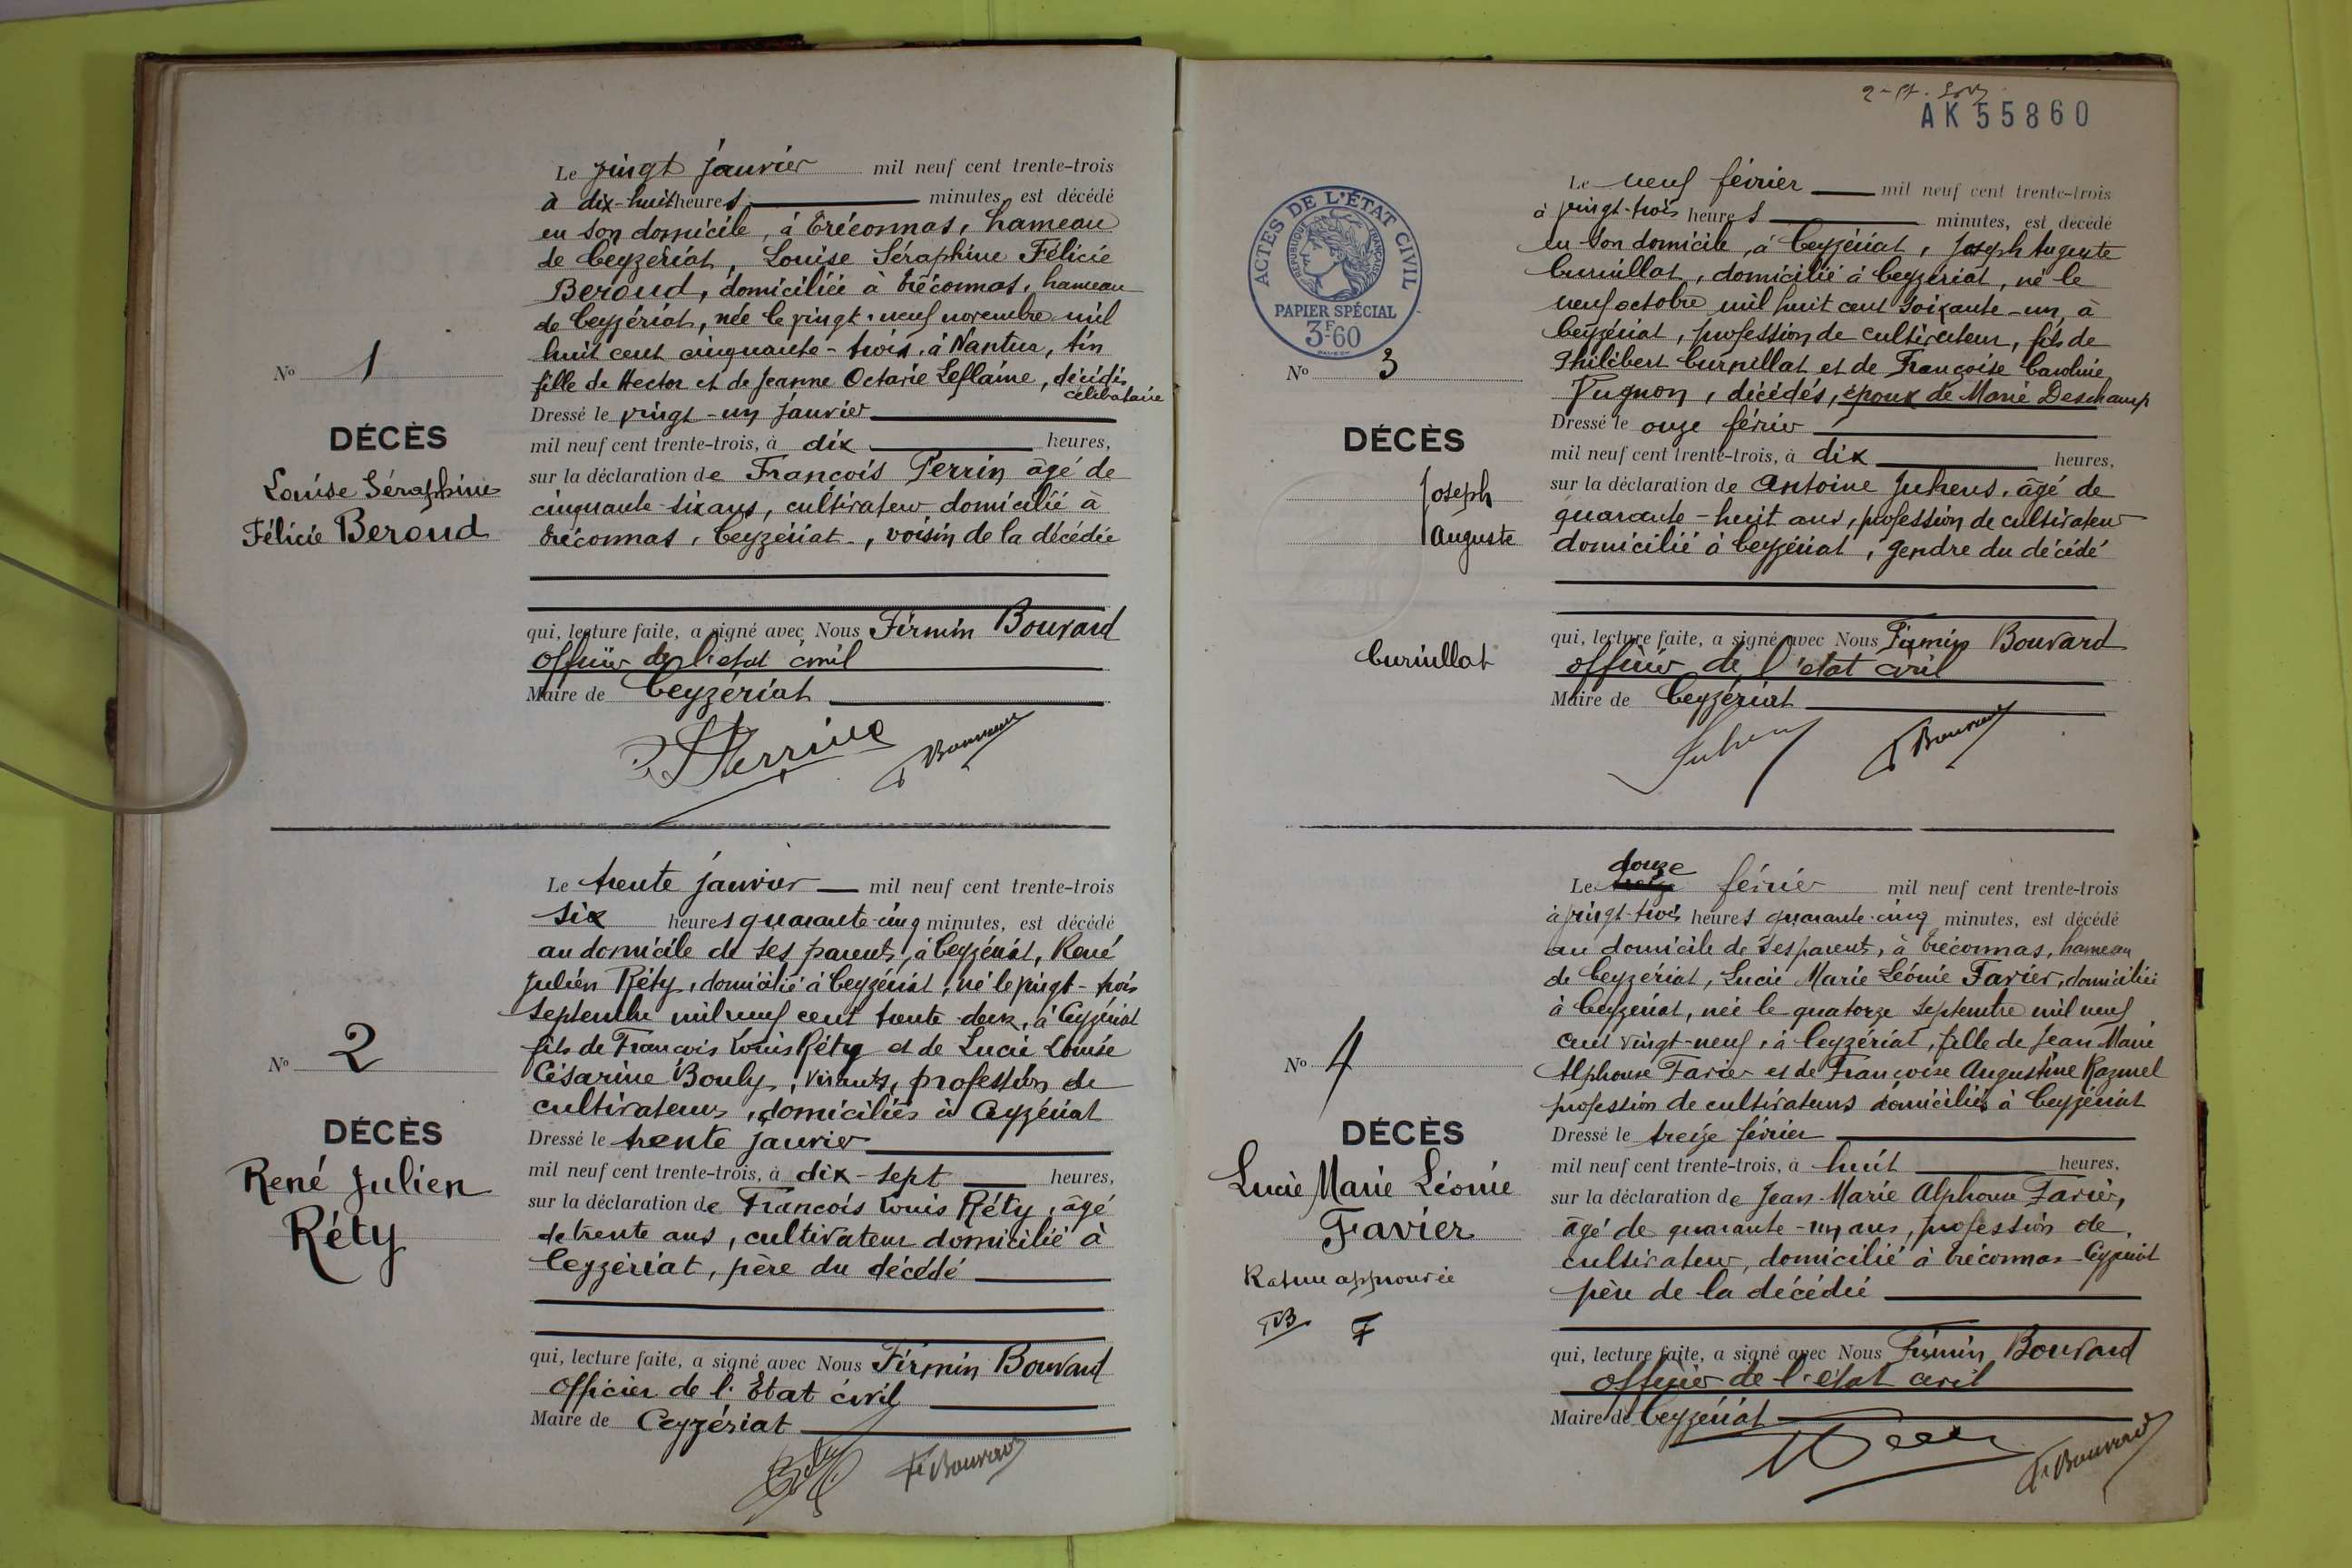 Le vingt janvier mil neuf cent trente-trois
à dix-huit heures minutes, est décédé
en son domicile, à Tréconnas, hameau
de Ceyzériat, Louise Séraphine Félicie
Beroud, domiciliée à Tréconnas, hameau
de Ceyzériat, née le vingt-neuf novembre mil
huit cent cinquante-trois, à Nantua, Ain
fille de Hector et de Jeanne Octavie Leflaine, décédés
célibataire
Nº 1
DÉCÈS
Louise Séraphine
Félicie Beroud
Dressé le vingt-un janvier
mil neuf cent trente-trois, à dix heures,
sur la déclaration de François Perrin âgé de
cinquante-six ans, cultivateur domicilié à
Tréconnas, Ceyzériat, voisin de la décédée
qui, lecture faite, a signé avec Nous Firmin Bouvard
officier de l'état civil
Maire de Ceyzériat
Perrin
F Bouvard
Le trente janvier mil neuf cent trente-trois
six heures quarante-cinq minutes, est décédé
au domicile de ses parents, à Ceyzériat, René
Julien Réty, domicilié à Ceyzériat, né le vingt-trois
septembre mil neuf cent trente-deux, à Ceyzériat
fils de François Louis Réty et de Lucie Louise
Césarine Bouly, vivants, profession de
cultivateurs, domiciliés à Ceyzériat
Nº 2
DÉCÈS
René Julien
Réty
Dressé le trente janvier
mil neuf cent trente-trois, à dix-sept heures,
sur la déclaration de François Louis Réty, âgé
de trente ans, cultivateur domicilié à
Ceyzériat, père du décédé
qui, lecture faite, a signé avec Nous Firmin Bouvard
Officier de l'Etat civil
Maire de Ceyzériat
Réty
F Bouvard
AK 55860
ACTES DE L'ÉTAT CIVIL
RÉPUBLIQUE FRANÇAISE
PAPIER SPÉCIAL
3F60
Le neuf février mil neuf cent trente-trois
à vingt-trois heures minutes, est décédé
en son domicile, à Ceyzériat, Joseph Auguste
Curnillat, domicilié à Ceyzériat, né le
neuf octobre mil huit cent soixante-un, à
Ceyzériat, profession de cultivateur, fils de
Philibert Curnillat et de Françoise Caroline
Vugnon, décédés, époux de Marie Deschamp
Nº 3
DÉCÈS
Joseph
Auguste
Curnillat
Dressé le onze février
mil neuf cent trente-trois, à dix heures,
sur la déclaration de Antoine Juhens, âgé de
quarante-huit ans, profession de cultivateur
domicilié à Ceyzériat, gendre du décédé
qui, lecture faite, a signé avec Nous Firmin Bouvard
officier de l'état civil
Maire de Ceyzériat
F Bouvard
douze
Le treize février mil neuf cent trente-trois
à vingt-trois heures quarante-cinq minutes, est décédé
au domicile de ses parents, à Tréconnas, hameau
de Ceyzériat, Lucie Marie Léonie Favier, domiciliée
à Ceyzériat, née le quatorze septembre mil neuf
cent vingt-neuf, à Ceyzériat, fille de Jean Marie
Alphonse Favier et de Françoise Augustine Razurel
profession de cultivateurs domiciliés à Ceyzériat
Nº 4
DÉCÈS
Lucie Marie Léonie
Favier
Rature approuvée
FB F
Dressé le treize février
mil neuf cent trente-trois, à huit heures,
sur la déclaration de Jean-Marie Alphonse Favier,
âgé de quarante-un ans, profession de
cultivateur, domicilié à Tréconnas-Ceyzériat
père de la décédée
qui, lecture faite, a signé avec Nous Firmin Bouvard
officier de l'état civil
Maire de Ceyzériat
F Bouvard